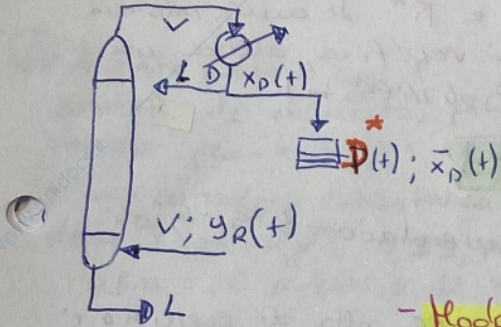 V
L D x_D(t)
*
D(t) ; x̄_D(t)
V; y_R(t)
L
- Mod